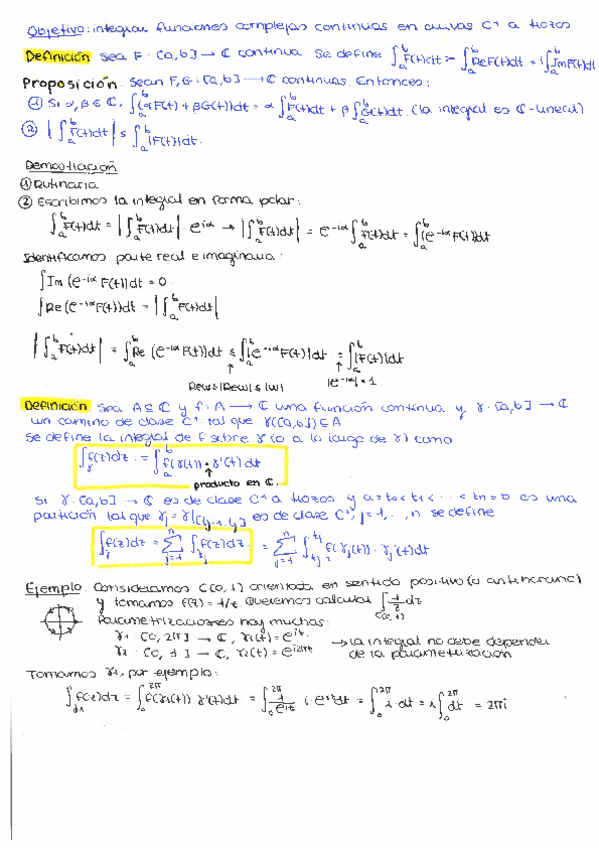 Objetivo: integrar funciones complejas continuas en curvas C¹ a trozos
Definición Sea F: [a,b] → ℂ continua. Se define ∫_a^b F(t)dt := ∫_a^b Re F(t)dt + i ∫_a^b Im F(t)dt
Proposición. Sean F, G: [a,b] → ℂ continuas. Entonces:
① Si α, β ∈ ℂ, ∫_a^b (αF(t) + βG(t))dt = α ∫_a^b F(t)dt + β ∫_a^b G(t)dt. (la integral es ℂ-lineal)
② |∫_a^b F(t)dt| ≤ ∫_a^b |F(t)|dt.
Demostración
① Rutinaria
② Escribimos la integral en forma polar:
∫_a^b F(t)dt = |∫_a^b F(t)dt| · e^{iα} → |∫_a^b F(t)dt| = e^{-iα} ∫_a^b F(t)dt = ∫_a^b (e^{-iα} F(t))dt
Identificamos parte real e imaginaria:
∫ Im (e^{-iα} F(t))dt = 0
∫ Re (e^{-iα} F(t))dt = |∫_a^b F(t)dt|
|∫_a^b F(t)dt| = ∫_a^b Re (e^{-iα} F(t))dt ≤ ∫_a^b |e^{-iα} F(t)|dt = ∫_a^b |F(t)|dt
Rew ≤ |Rew| ≤ |w| |e^{-iα}| = 1
Definición Sea A ⊆ ℂ y f: A → ℂ una función continua y γ: [a,b] → ℂ
un camino de clase C¹ tal que γ([a,b]) ⊆ A
Se define la integral de f sobre γ (o a lo largo de γ) como
∫_γ f(z)dz := ∫_a^b f(γ(t)) · γ'(t)dt
producto en ℂ.
Si γ: [a,b] → ℂ es de clase C¹ a trozos y a = t₀ < t₁ < ... < tn = b es una
partición tal que γj = γ|[tj-1, tj] es de clase C¹, j = 1, .., n se define
∫_γ f(z)dz = Σ_{j=1}^n ∫_{γj} f(z)dz = Σ_{j=1}^n ∫_{tj-1}^{tj} f(γj(t)) · γj'(t)dt
Ejemplo. Consideramos C(0,1) orientada en sentido positivo (o antihorario)
y tomamos f(z) = 1/z queremos calcular ∫_{C(0,1)} 1/z dz
Parametrizaciones hay muchas:
γ₁: [0, 2π] → ℂ, γ₁(t) = e^{it}
γ₂: [0, 1] → ℂ, γ₂(t) = e^{i2πt}
→ la integral no debe depender
de la parametrización
Tomamos γ₁, por ejemplo:
∫_{γ₁} f(z)dz = ∫_0^{2π} f(γ₁(t)) · γ'(t)dt = ∫_0^{2π} 1/e^{it} · i · e^{it} dt = ∫_0^{2π} i · dt = i ∫_0^{2π} dt = 2πi